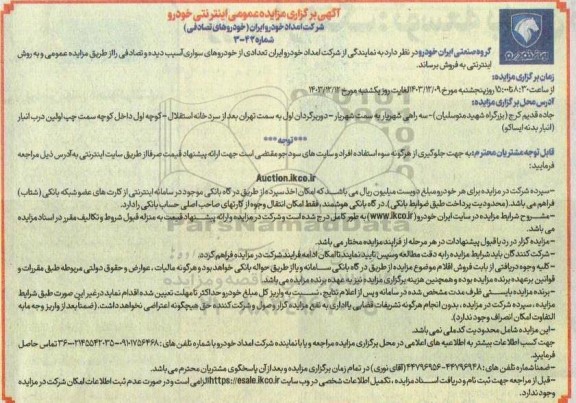 آگهی برگزاری مزایده عمومی اینترنتی خودرو
شرکت امداد خودرو ایران (خودروهای تصادفی)
شماره ۴۲-۳
گروه صنعتی ایران خودرو در نظر دارد به نمایندگی از شرکت امداد خودرو ایران تعدادی از خودروهای سواری آسیب دیده و تصادفی را از طریق مزایده عمومی و به روش
اینترنتی به فروش برساند.
زمان برگزاری مزایده:
از ساعت ۸:۳۰ تا ۱۵:۰۰ روز پنجشنبه مورخ ۱۴۰۳/۱۲/۰۹ لغایت روز یکشنبه مورخ ۱۴۰۳/۱۲/۱۲
آدرس محل برگزاری مزایده:
جاده قدیم کرج (بزرگراه شهید متوسلیان)- سه راهی شهریار به سمت شهریار - دوربرگردان اول به سمت تهران بعد از سردخانه استقلال - کوچه اول داخل کوچه سمت چپ اولین درب انبار
(انبار بدنه ایساکو)
***توجه***
قابل توجه مشتریان محترم: به جهت جلوگیری از هرگونه سوء استفاده افراد و سایت های سودجو مقتضی است جهت ارائه پیشنهاد قیمت صرفا از طریق سایت اینترنتی به آدرس ذیل مراجعه
فرمایید:
Auction.ikco.ir
-سپرده شرکت در مزایده برای هر خودرو مبلغ دویست میلیون ریال می باشد که امکان اخذ سپرده از طریق درگاه بانکی موجود در سامانه اینترنتی از کارت های عضو شبکه بانکی (شتاب)
فراهم می باشد. (محدودیت پرداخت طبق ضوابط بانکی). در گاه بانکی هوشمند، فقط امکان انتقال وجوه از کارتهای صاحب اصلی حساب بانکی را دارد.
-مشروح شرایط مزایده در سایت ایران خودرو (www.ikco.ir) به طور کامل درج شده است و شرکت در مزایده و ارائه پیشنهاد قیمت به منزله قبول شروط و تکالیف مقرر در اسناد مزایده
می باشد.
-مزایده گزار در رد یا قبول پیشنهادات در هر مرحله از فرایند مزایده مختار می باشد.
-شرکت کنندگان باید شرایط مزایده را به دقت مطالعه و سپس تایید نمایند تا امکان ادامه فرایند شرکت در مزایده فراهم گردد.
-کلیه وجوه دریافتی از بابت فروش اقلام موضوع مزایده از طریق درگاه بانکی سامانه و یا از طریق حواله بانکی خواهد بود و هرگونه مالیات، عوارض و حقوق دولتی مربوطه طبق مقررات و
قوانین برعهده برنده مزایده بوده و همچنین هزینه برگزاری مزایده نیز به عهده برنده مزایده می باشد.
-برنده مزایده بایستی ظرف مدت مشخص شده در سامانه و پس از اعلام نتایج، نسبت به واریز کل مبلغ خودرو حداکثر تا مهلت تعیین شده اقدام نماید در غیر این صورت طبق شرایط
مزایده، سپرده شرکت در مزایده، بدون انجام هرگونه تشریفات قضایی یا اداری به نفع مزایده گزار وصول و شرکت کننده حق هیچگونه اعتراضی نخواهد داشت. (ضمنا بعد از واریز وجه ما به
التفاوت امکان انصراف وجود ندارد).
-این مزایده شامل محدودیت کدملی نمی باشد.
جهت کسب اطلاعات بیشتر به اطلاعیه های اعلامی در محل برگزاری مزایده مراجعه و یا با نماینده شرکت امداد خودرو با شماره تلفن های: تماس حاصل
فرمایید.
-ضمنا شماره تلفن های: ۴۴۷۹۶۹۴۸-۴۴۷۹۶۹۵۶ (آقای نوری) در تمام زمان برگزاری مزایده و بعد از آن پاسخگوی مشتریان محترم می باشد.
-قبل از مراجعه جهت ثبت نام و دریافت اسناد مزایده، تکمیل اطلاعات شخصی در وب سایت https://esale.ikco.ir الزامی است و در صورت عدم ثبت اطلاعات امکان شرکت در مزایده
وجود ندارد.